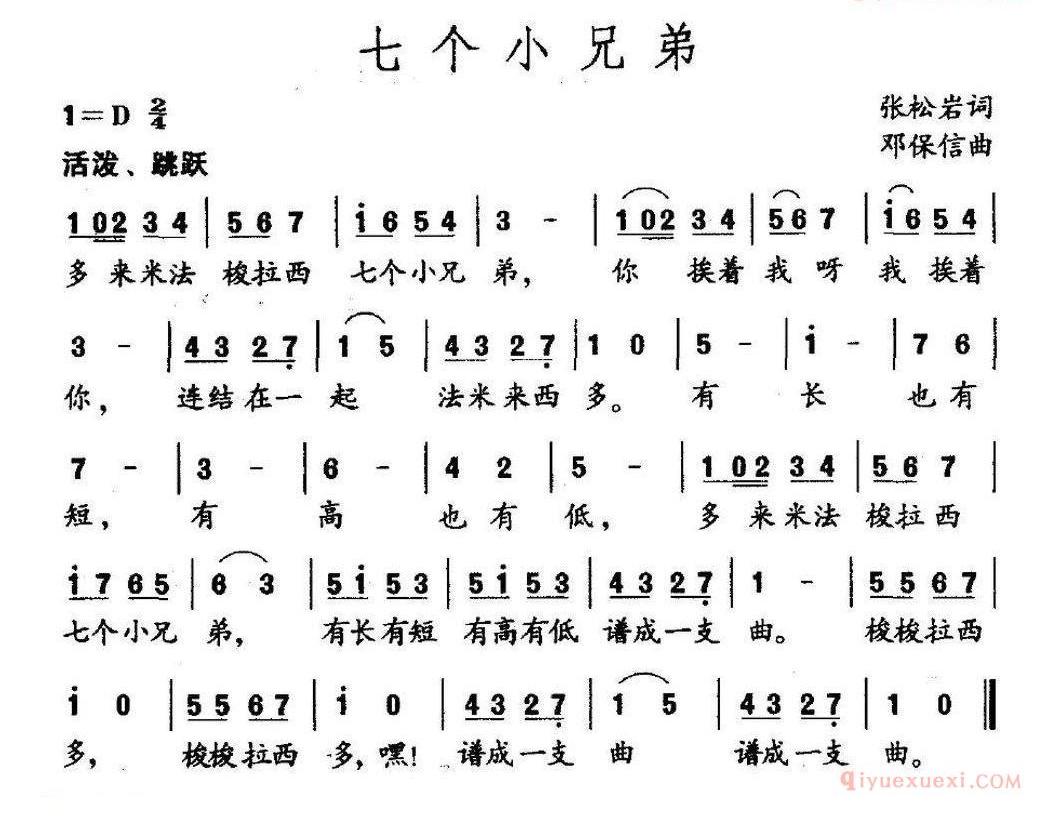 七个小兄弟
1=D 2/4
张松岩词
邓保信曲
活泼、跳跃
1 0 2 3 4 | 5 6 7 | i 6 5 4 | 3 - | 1 0 2 3 4 | 5 6 7 | i 6 5 4 |
多 来米法 梭拉西 七个小兄 弟, 你 挨着 我 呀 我 挨着
3 - | 4 3 2 7 | 1 5 | 4 3 2 7 | 1 0 | 5 - | i - | 7 6 |
你, 连结在一 起 法米来西 多。 有 长 也有
7 - | 3 - | 6 - | 4 2 | 5 - | 1 0 2 3 4 | 5 6 7 |
短, 有 高 也有 低, 多 来米法 梭拉西
i 7 6 5 | 6 3 | 5 i 5 3 | 5 i 5 3 | 4 3 2 7 | 1 - | 5 5 6 7 |
七个小兄 弟, 有长有短 有高有低 谱成一支 曲。 梭梭拉西
i 0 | 5 5 6 7 | i 0 | 4 3 2 7 | 1 5 | 4 3 2 7 | 1 0 ‖
多, 梭梭拉西 多,嘿! 谱成一支 曲 谱成一支 曲。
qiyuexuexi.COM